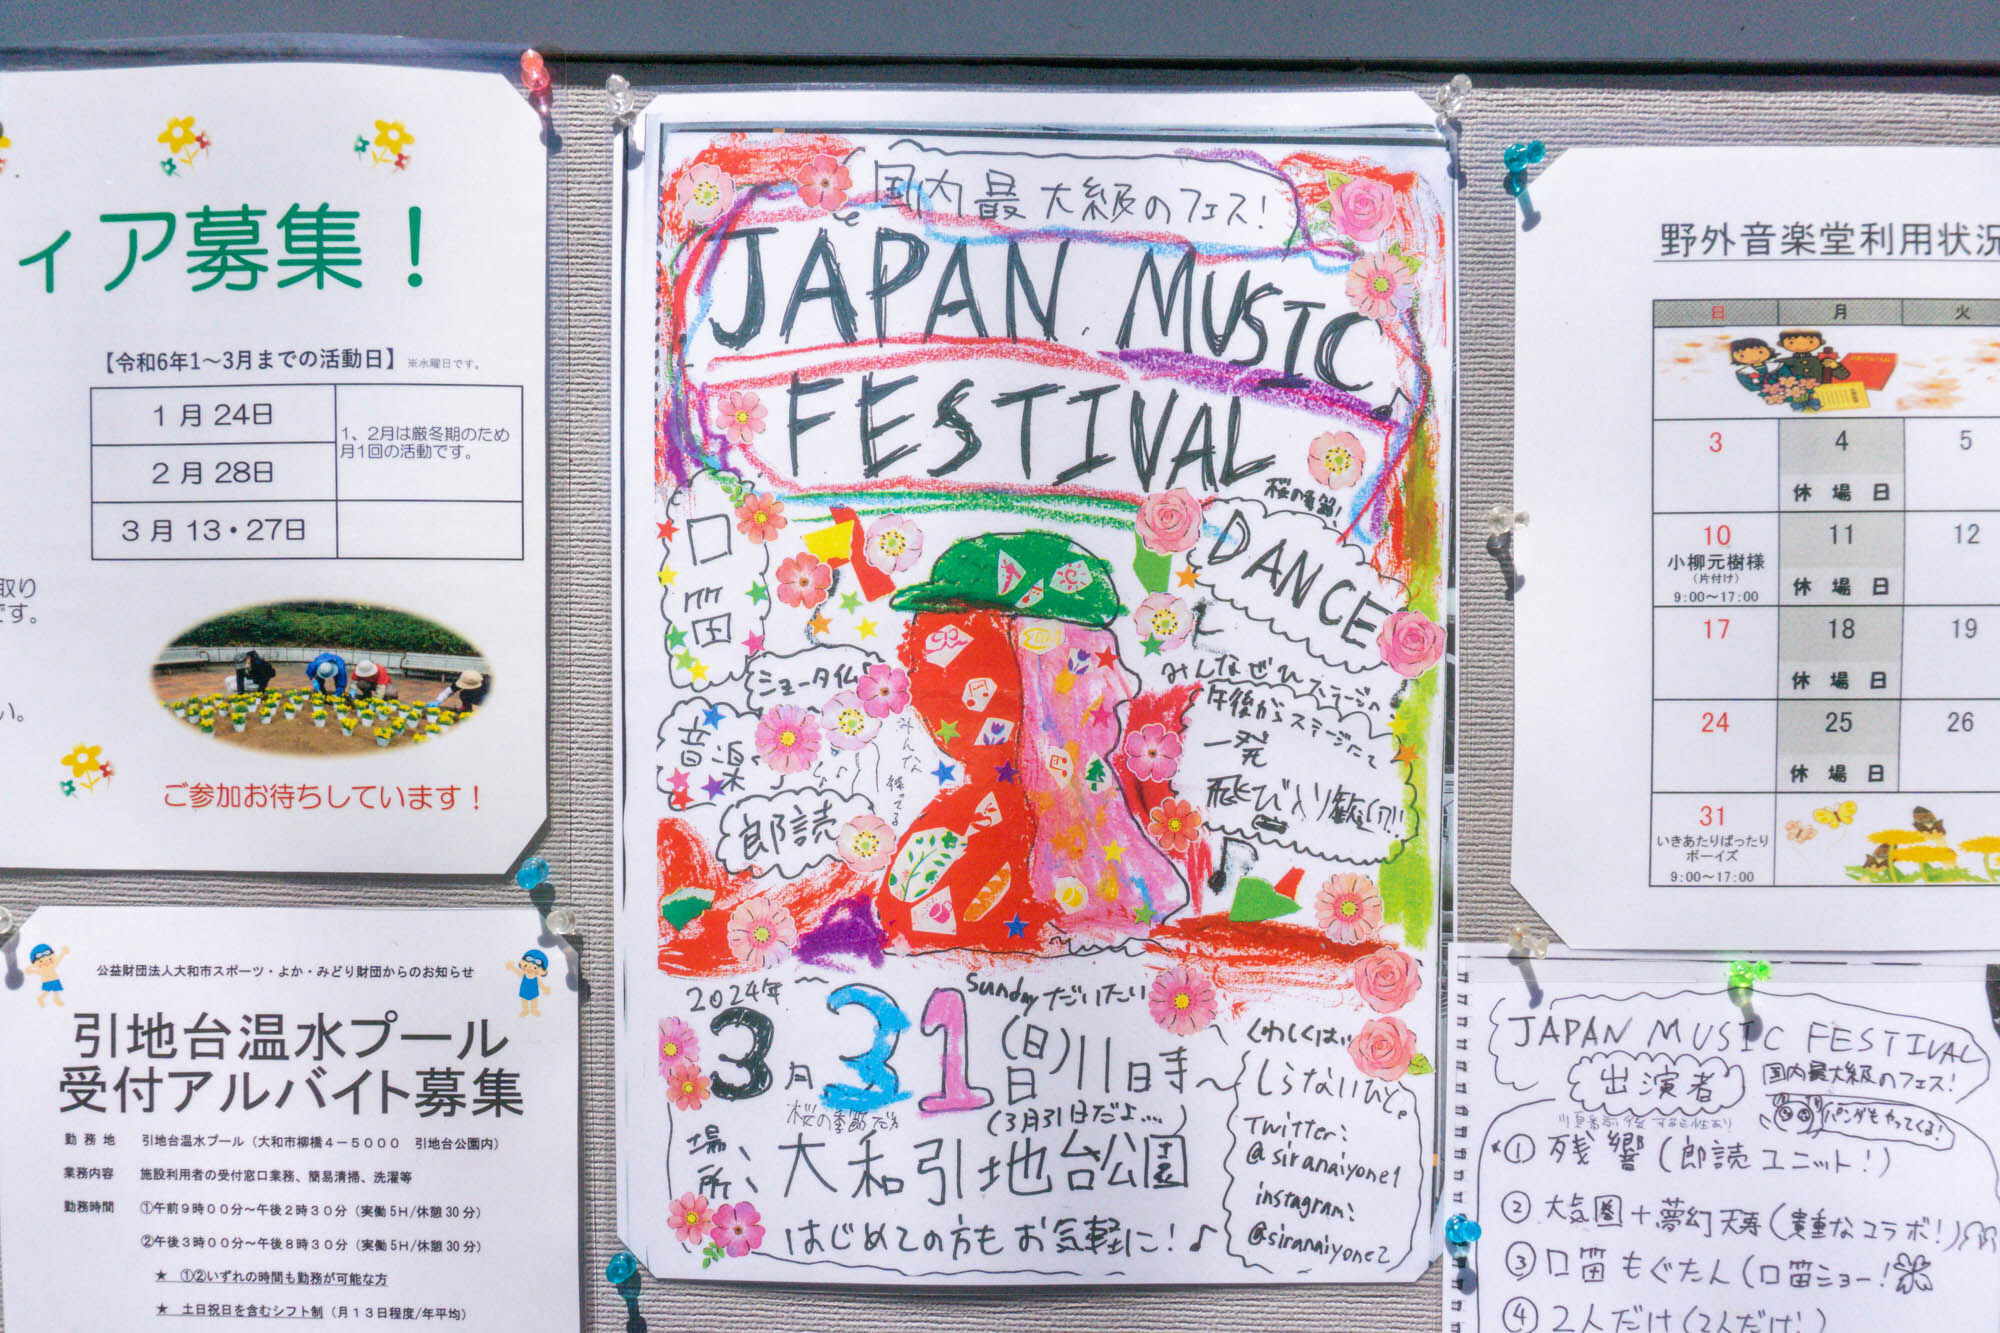 ィア募集！
【令和6年1～3月までの活動日】 ※水曜日です。
1月24日
1、2月は厳冬期のため
月1回の活動です。
2月28日
3月13・27日
取り
です。
い。
ご参加お待ちしています！
公益財団法人大和市スポーツ・よか・みどり財団からのお知らせ
引地台温水プール
受付アルバイト募集
勤務地 引地台温水プール（大和市柳橋4－5000 引地台公園内）
業務内容 施設利用者の受付窓口業務、簡易清掃、洗濯等
勤務時間 ①午前9時00分～午後2時30分（実働5H/休憩30分）
②午後3時00分～午後8時30分（実働5H/休憩30分）
★ ①②いずれの時間も勤務が可能な方
★ 土日祝日を含むシフト制（月13日程度/年平均）
国内最大級のフェス！
JAPAN MUSIC
FESTIVAL
桜の季節！
口笛
DANCE
ショータイム
みんなぜひステージへ
音楽
みんな待ってる
午後からステージにて
一発
飛び入り歓迎!!!
朗読
2024年
Sunday だいたい
3月31日(日)11時～
桜の季節だね
(3月31日だよ....)
場所、大和引地台公園
はじめての方もお気軽に！♪
くわしくは
しらないひと。
Twitter:
@siranaiyone1
instagram:
@siranaiyone2
野外音楽堂利用状況
日 月 火
3 4 5
休場日
10 11 12
小柳元樹様
（片付け）
9:00～17:00
休場日
17 18 19
休場日
24 25 26
休場日
31
いきあたりばったり
ボーイズ
9:00～17:00
JAPAN MUSIC FESTIVAL
出演者
国内最大級のフェス！
パンダもやってくる！
①残響（朗読ユニット！）
②大気圏＋夢幻天寿（貴重なコラボ！）
③口笛もぐたん（口笛ショー！
④2人だけ（2人だけ！）